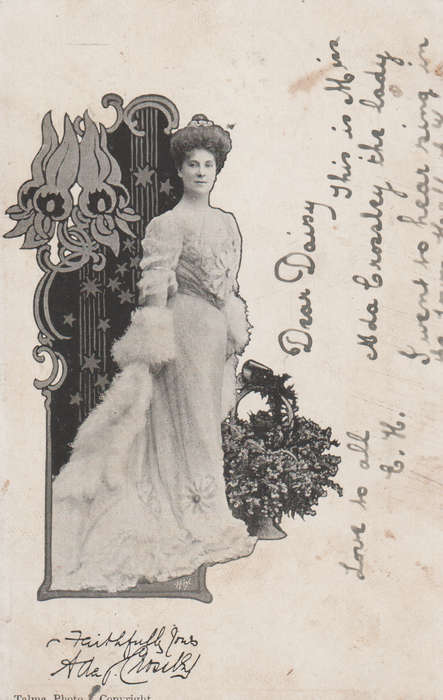 Dear Daisy
This is Miss
Ada Crossley the lady
I went to hear sing in
Love to all
C. H.
Faithfully Yours
Ada J. Crossley
Talma Photo Copyright